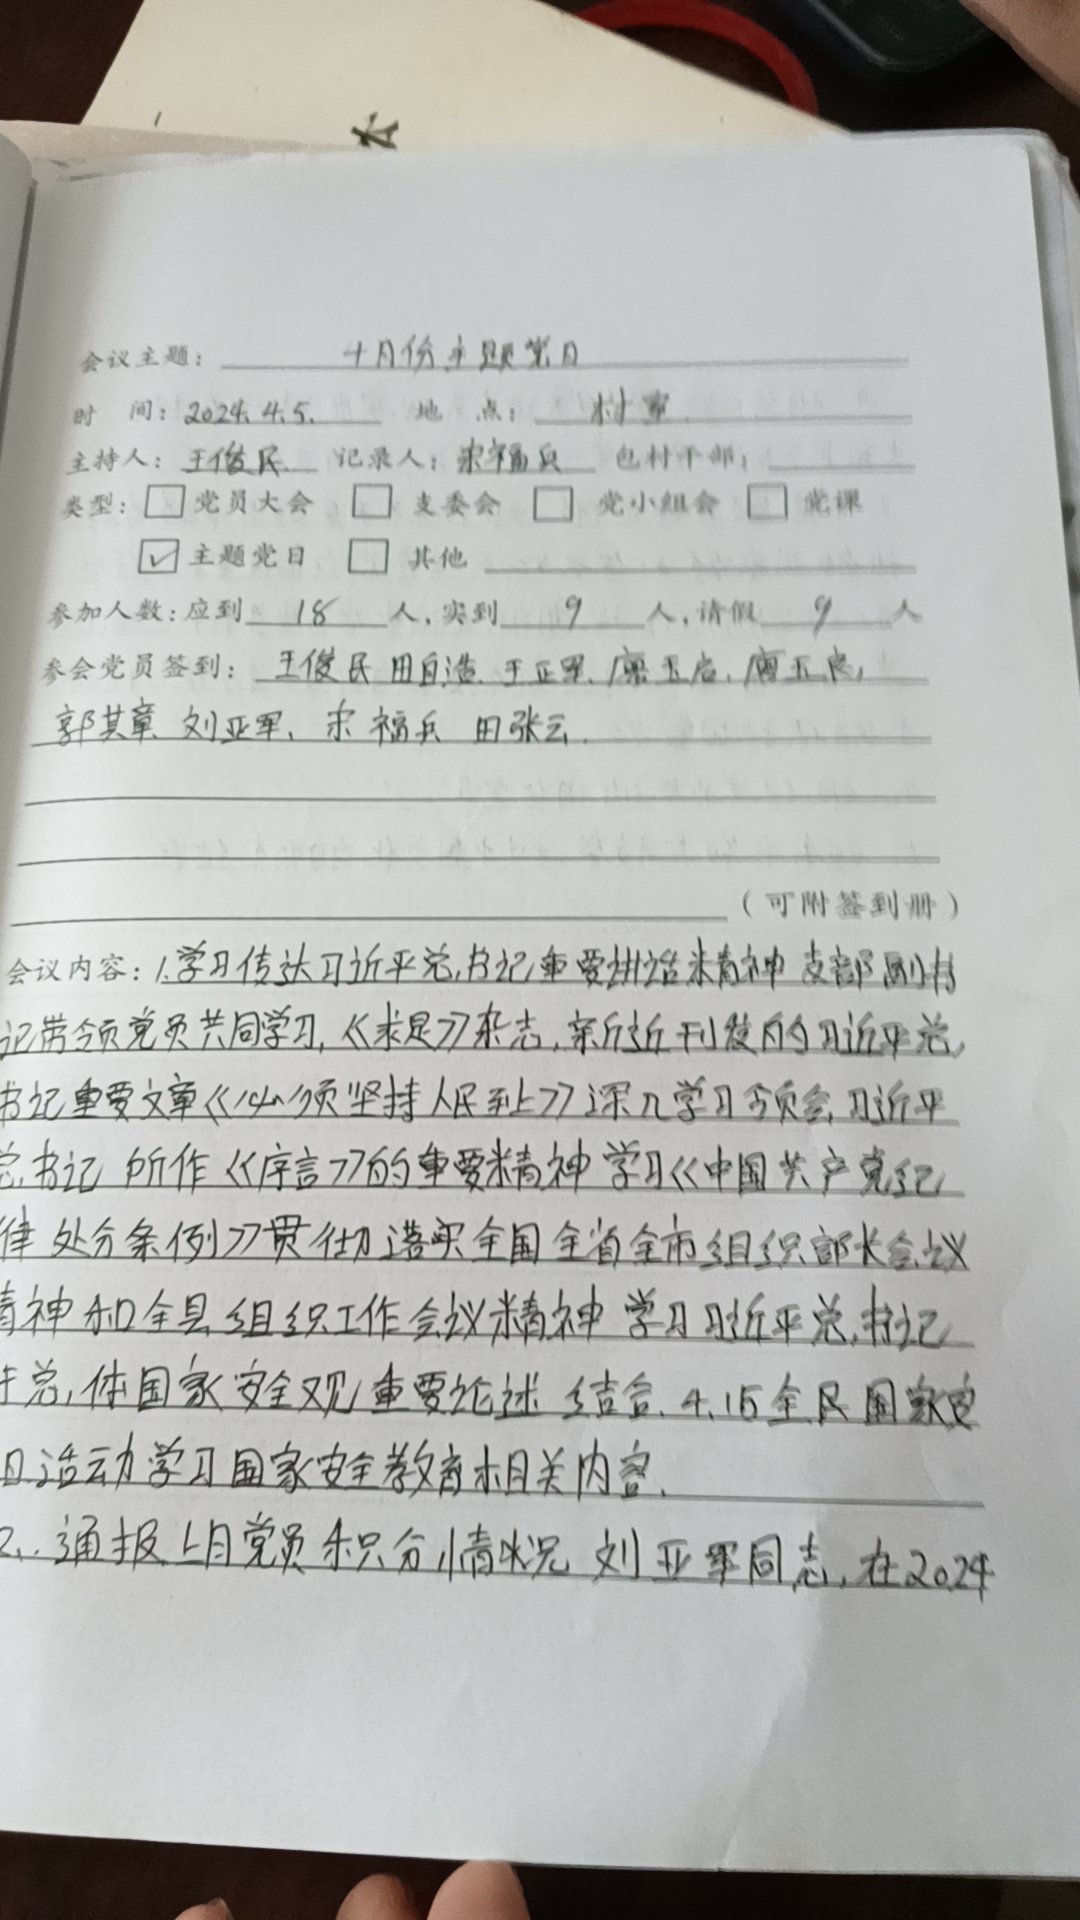 会议主题： 十月份主题党日
时 间：2024.4.5. 地 点： 村室
主持人： 王俊民 记录人： 宋福兵 包村干部：
类型： 党员大会 支委会 党小组会 党课
主题党日 其他
参加人数：应到 18 人，实到 9 人，请假 9 人
参会党员签到： 王俊民 田自造. 王正军. 廖玉启. 廖玉良,
郭其章 刘亚军、宋福兵 田张云.
（可附签到册）
会议内容：1.学习传达习近平总书记重要讲话精神 支部副书
记带领党员共同学习,《求是》杂志,新近刊发的习近平总
书记重要文章《必须坚持人民至上》深入学习领会习近平
总书记 所作《序言》的重要精神 学习《中国共产党纪
律处分条例》贯彻落实全国全省全市组织部长会议
精神和全县组织工作会议精神 学习习近平总书记
于总体国家安全观重要论述 结合 4.15全民国家安
日活动学习国家安全教育相关内容.
2.通报上月党员积分情况 刘亚军同志,在2024